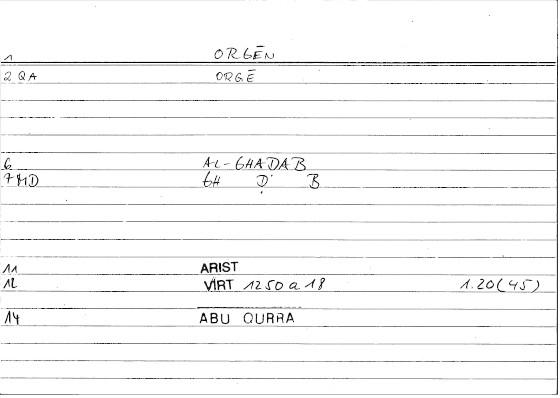 1 ORGĒN
2 QA ORGĒ
6 AL-GHAḌAB
7 MD GH Ḍ B
11 ARIST
12 VIRT 1250 a 18 1.20(45)
14 ABU QURRA